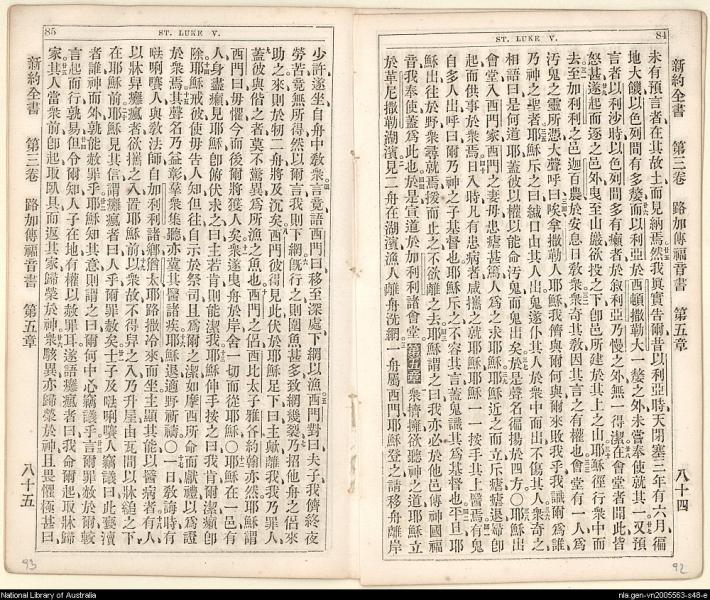 84
ST. LUKE V.
新約全書 第三卷 路加傳福音書 第五章 八十四
未有預言者在其故土而見納焉然我眞實告爾昔以利亞時天閉塞三年有六月徧
地大饑以色列間有多嫠而以利亞於西頓撒勒大一嫠之外未嘗奉使就其一又預
言者以利沙時以色列間多有癩者於叙利亞乃慢之外無一得潔在會堂者聞此皆
怒甚遂起而逐之邑外曳至山巖欲投之下卽邑所建於其上之山耶穌徑行衆中而
去至加利利之邑迦百農於安息日敎衆衆奇其敎因其言之有權也會堂有一人爲
汚鬼之靈所憑大聲呼曰唉拿撒勒人耶穌我儕與爾何與爾來敗我乎我識爾爲誰
乃神之聖者耶穌斥之曰緘口由其人出鬼遂仆其人於衆中而出不傷其人衆奇之
相語曰是何道耶蓋彼以權以能命汚鬼而鬼出矣於是聲名徧揚於四方〇耶穌出
會堂入西門家西門之妻母患瘧甚篤人爲之求耶穌耶穌近之而立斥瘧瘧退婦卽
起而供事於衆焉日入時凡有患病者咸攜之就耶穌耶穌一一按手其上醫焉有鬼
自多人出呼曰爾乃神之子基督也耶穌斥之不容其言蓋鬼識其爲基督也平旦耶
穌出往於野衆尋就焉援而止之不欲離之去耶穌謂之曰我亦必於他邑傳神國福
音我奉使蓋爲此也於是宣道於加利利諸會堂第五章衆擠擁欲聽神之道耶穌立
於革尼撒勒湖濱見二舟在湖濱漁人離舟洗網一舟屬西門耶穌登之請移舟離岸
85
ST. LUKE V.
少許遂坐自舟中敎衆言竟語西門曰移至深處下網以漁西門對曰夫子我儕終夜
勞苦竟無所得然以爾言我則下網旣行之則圍魚甚多致網幾裂乃招他舟之侶來
助之來則於物二舟將及沉矣西門彼得見此伏於耶穌足下曰主歟離我我乃罪人
蓋彼與偕之者莫不驚異爲所漁之魚也西門之侶西比太子雅各約翰亦然耶穌謂
西門曰毋懼今而後爾將獲人矣衆遂曳舟於岸舍一切而從耶穌〇耶穌在一邑有
人身盡癩見耶穌卽俯伏求之曰主若肯則能潔我耶穌伸手按之曰我肯爾潔癩卽
除耶穌戒彼使毋告人知但往自示於祭司且爲爾之潔如摩西所命而獻禮以爲證
於衆焉其聲名乃益彰羣衆集聽亦冀其醫諸疾耶穌退適野祈禱〇一日敎誨時有
𠵽唎㘔人與敎法師自加利利諸鄉猶太耶路撒冷來而坐主顯其能以醫病者有人
以牀舁癱瘓者欲攜之入置耶穌前以衆故不得舁之入乃升屋由瓦間以牀縋之下
在耶穌前耶穌見其信謂癱瘓者曰人乎爾罪赦矣士子及𠵽唎㘔人竊議曰此褻瀆
者誰神而外孰能赦罪乎耶穌知其意則謂之曰爾何中心竊議乎言爾罪赦於爾較
言起而行孰易但令爾知人子在地有權以赦罪耳遂語癱瘓者曰我命爾起取牀歸
家其人當衆前卽起取臥具而返其家歸榮於神衆駭異亦歸榮於神且畏懼極甚曰
新約全書 第三卷 路加傳福音書 第五章 八十五
93
92
National Library of Australia
nla.gen-vn2005563-s48-e